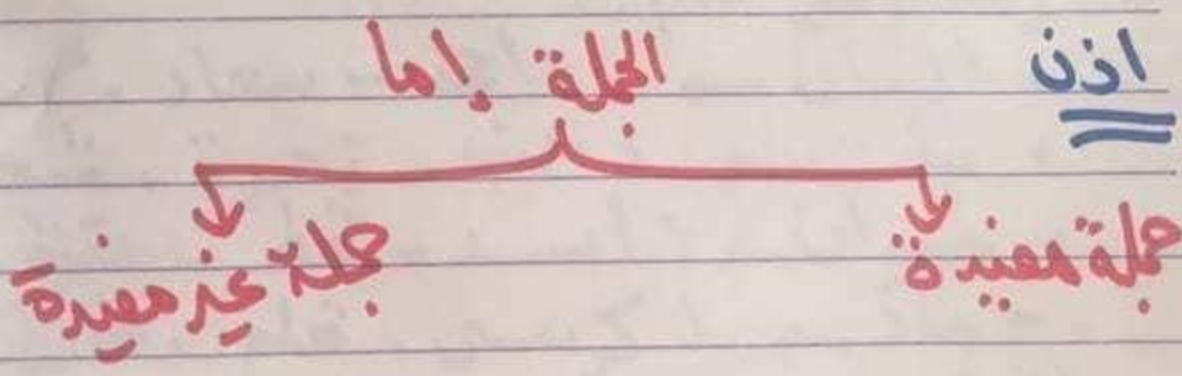 اذن
الجملة إما
جملة مفيدة
جملة غير مفيدة